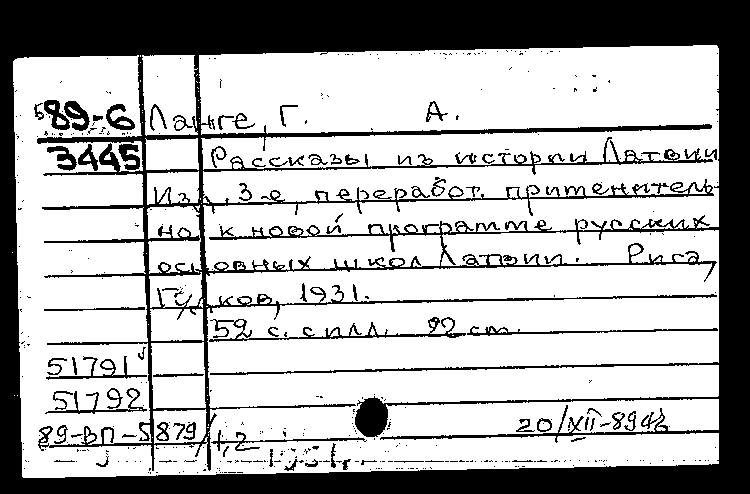 89-6 Ланге, Г. А.
3445 Рассказы из истории Латвии
Изд. 3-е, переработ. применитель-
но к новой программе русских
основных школ Латвии. Рига,
Гудков, 1931.
52 с. с илл. 22 см.
51791
51792
89-ВП-5879/1,2
20/XII-89
1931г.